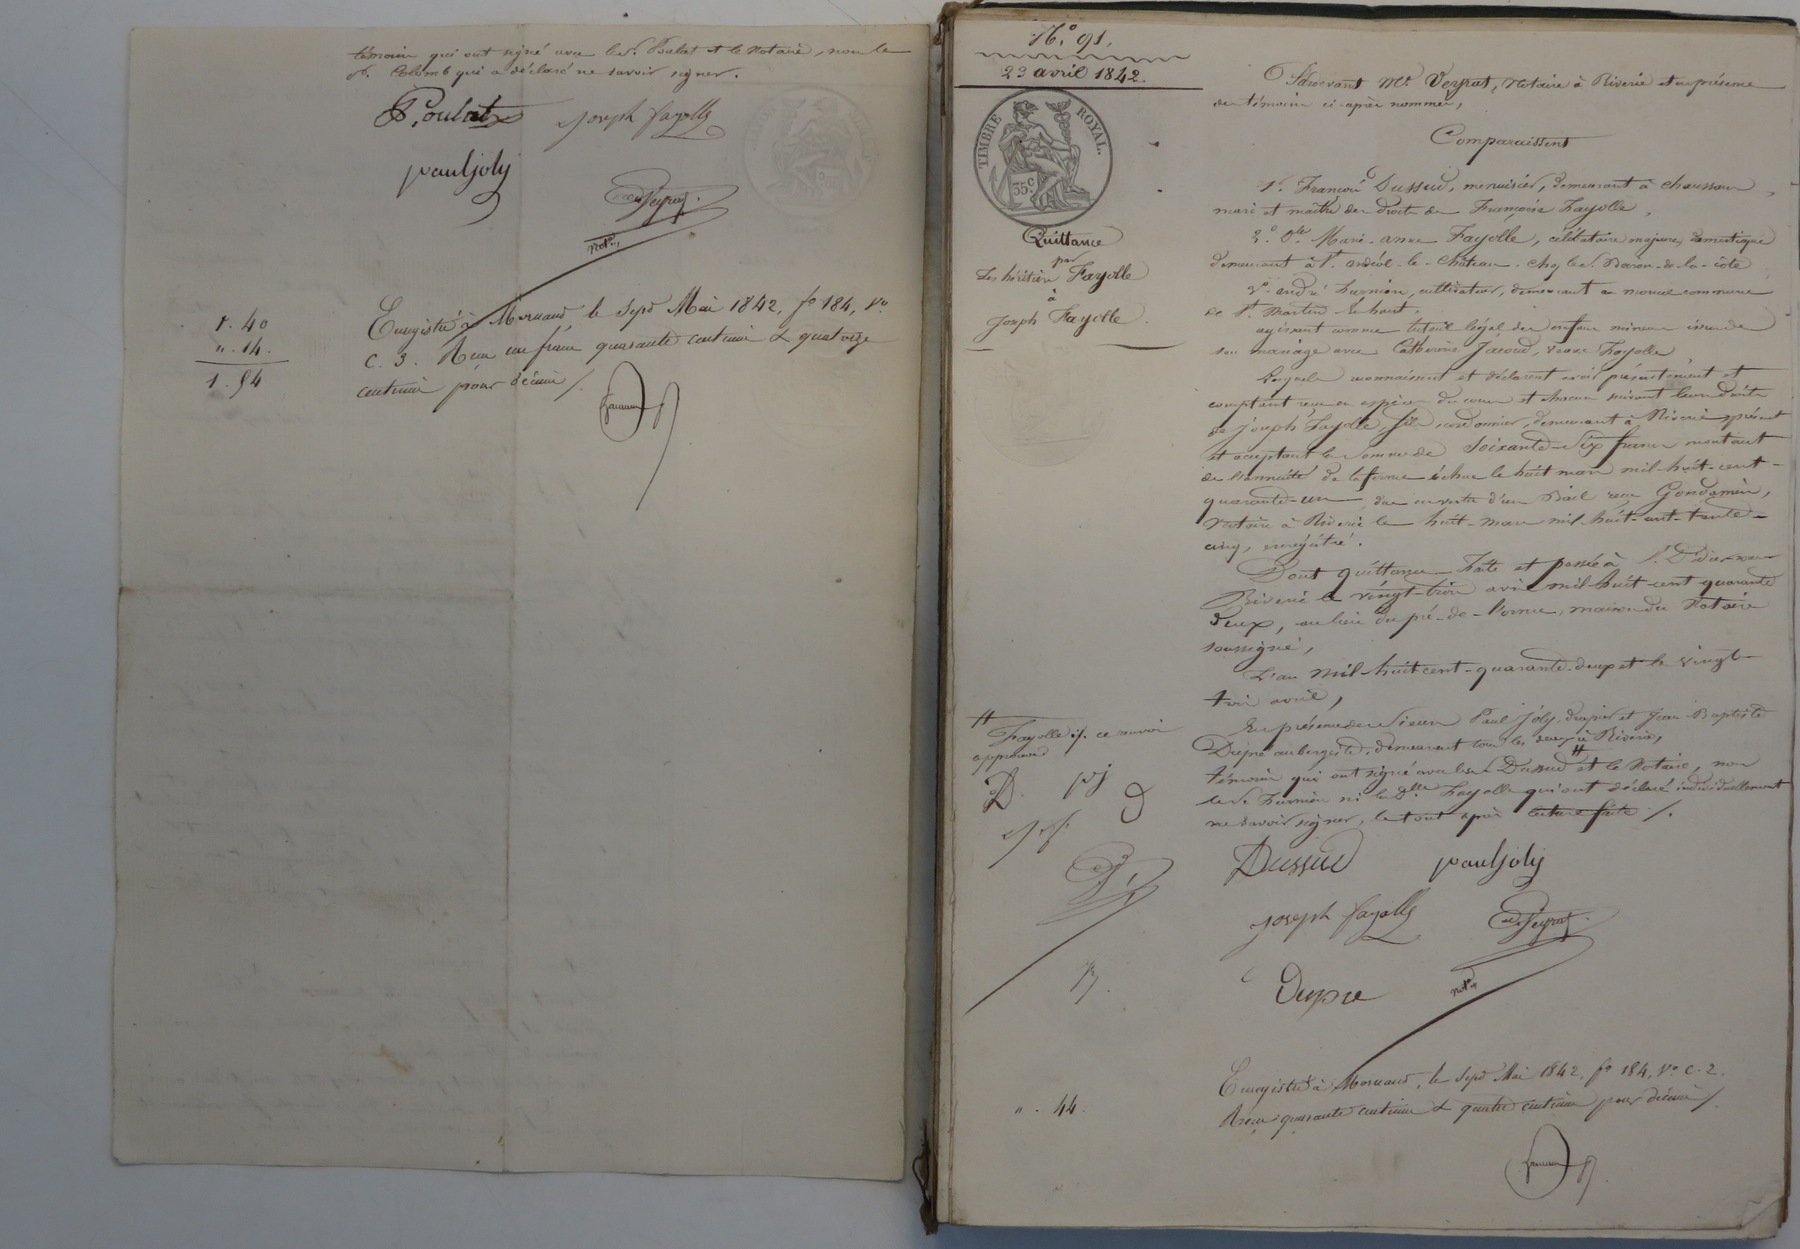 témoins qui ont signé avec le S. Poulat et le Notaire, non le
S. Colomb qui a déclaré ne savoir signer.
Poulat
joseph fayolle
paul joly
Veyrat
not.re
1. 40
". 14.
1. 54
Enregistré à Mornant le sept Mai 1842, fo 184, Vo
C. 3. Reçu un franc quarante centimes & quatorze
centimes pour décime /.
N.o 91.
23 avril 1842.
TIMBRE ROYAL.
35 c
Quittance
par
Les héritiers Fayolle
à
Joseph Fayolle.
Pardevant Me. Veyrat, Notaire à Riverie et en présence
des témoins ci-après nommés,
Comparaissent
1.o François Dussud, menuisier, demeurant à Chaussan,
mari et maître des droits de Françoise Fayolle,
2.o Dlle Marie-anne Fayolle, célibataire majeure, domestique
demeurant à St. andéol-le-Château, chez le S. Baron-de-la-côte
3.o andré, cultivateur, demeurant au commune
de St. Martin-le-haut,
agissant comme tuteur légal des enfans mineurs issus de
son mariage avec Catherine, veuve Fayolle
Lesquels reconnaissent et déclarent avoir présentement et
comptant reçu en espèces du cours et chacun suivant leurs droits
de Joseph Fayolle, fils, cordonnier, demeurant à Riverie présent
et acceptant la somme de Soixante-dix francs montant
de l'annuité de la ferme échue le huit mars mil-huit-cent-
quarante-un, due en vertu d'un Bail reçu Gondamin,
Notaire à Riverie le huit-mars mil-huit-cent-trente-
cinq, enregistré.
Dont quittance Faite et passée à St. Didier-sous
Riverie le vingt-trois avril mil-huit-cent quarante
deux, au lieu du pré-de-l'orme, maison du Notaire
soussigné,
L'an mil-huit cent-quarante-deux et le vingt-
trois avril,
En présence de Sieurs Paul Joly, drapier et Jean-Baptiste
Dupré aubergiste, demeurant tous les deux à Riverie,
témoins qui ont signé avec les S. Dussud # et le Notaire, non
le S. ni la Dlle Fayolle qui ont déclaré individuellement
ne savoir signer, le tout après lecture faite /.
#
Fayolle /. ce renvoi
approuvé
D. pj D
j f
Dussud
paul joly
joseph fayolle
Veyrat
Dupré
not.re
". 44.
Enregistré à Mornant, le sept Mai 1842. fo 184, Vo C. 2.
Reçu quarante centimes & quatre centimes pour décime /.